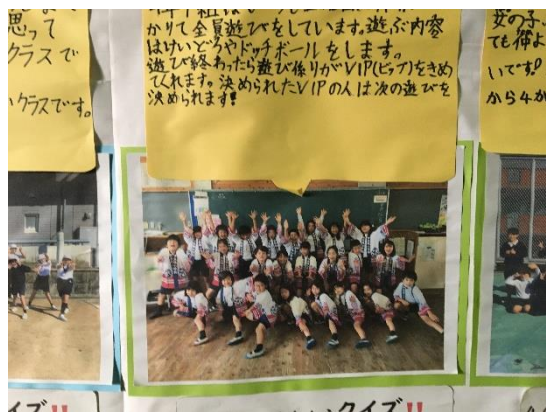 思って
クラスで
いクラスです。
かりて全員遊びをしています。遊ぶ内容
はけいどろやドッチボールをします。
遊び終わったら遊び係りがVIP(ビップ)をきめ
てくれます。決められたVIPの人は次の遊びを
決められます!
女の子
いです!
から4か
イズ!!
クイズ!!